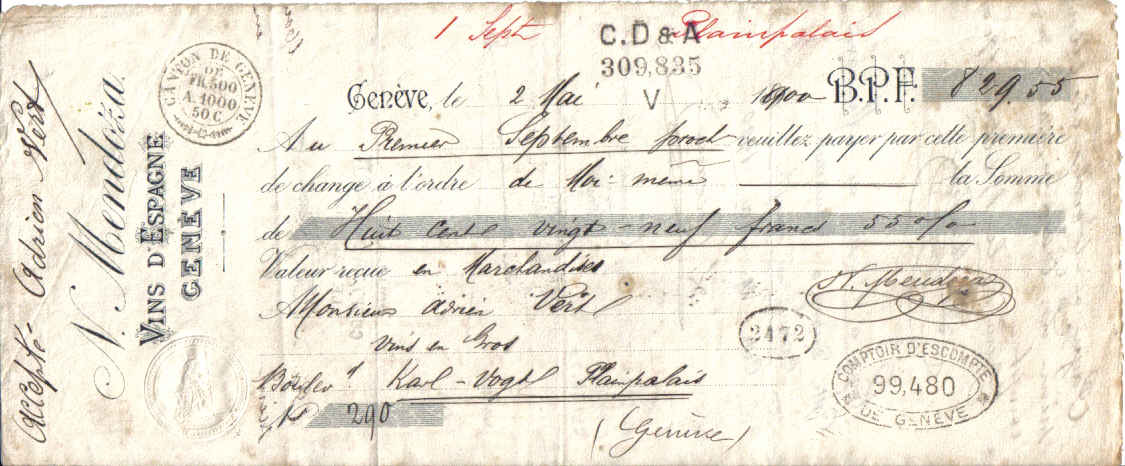 1 Sept Plainpalais
C.D & A
309,835
V
Genève, le 2 Mai 1900 B.P.F. 829.55
Au Premier Septembre proch veuillez payer par cette première
de change à l'ordre de Moi-même la Somme
de Huit Cent vingt-neuf francs 55 %
Valeur reçue en Marchandises
Monsieur Adrien Vert
Vins en Gros
Boulevd Karl-Vogt Plainpalais
(Genève)
290
N. Mendoza
2472
COMPTOIR D'ESCOMPTE
99,480
DE GENÈVE
CANTON DE GENÈVE
DE
FR.500
A.1000
50 C
N. Mendoza.
VINS D'ESPAGNE
GENÈVE
Accepté Adrien Vert